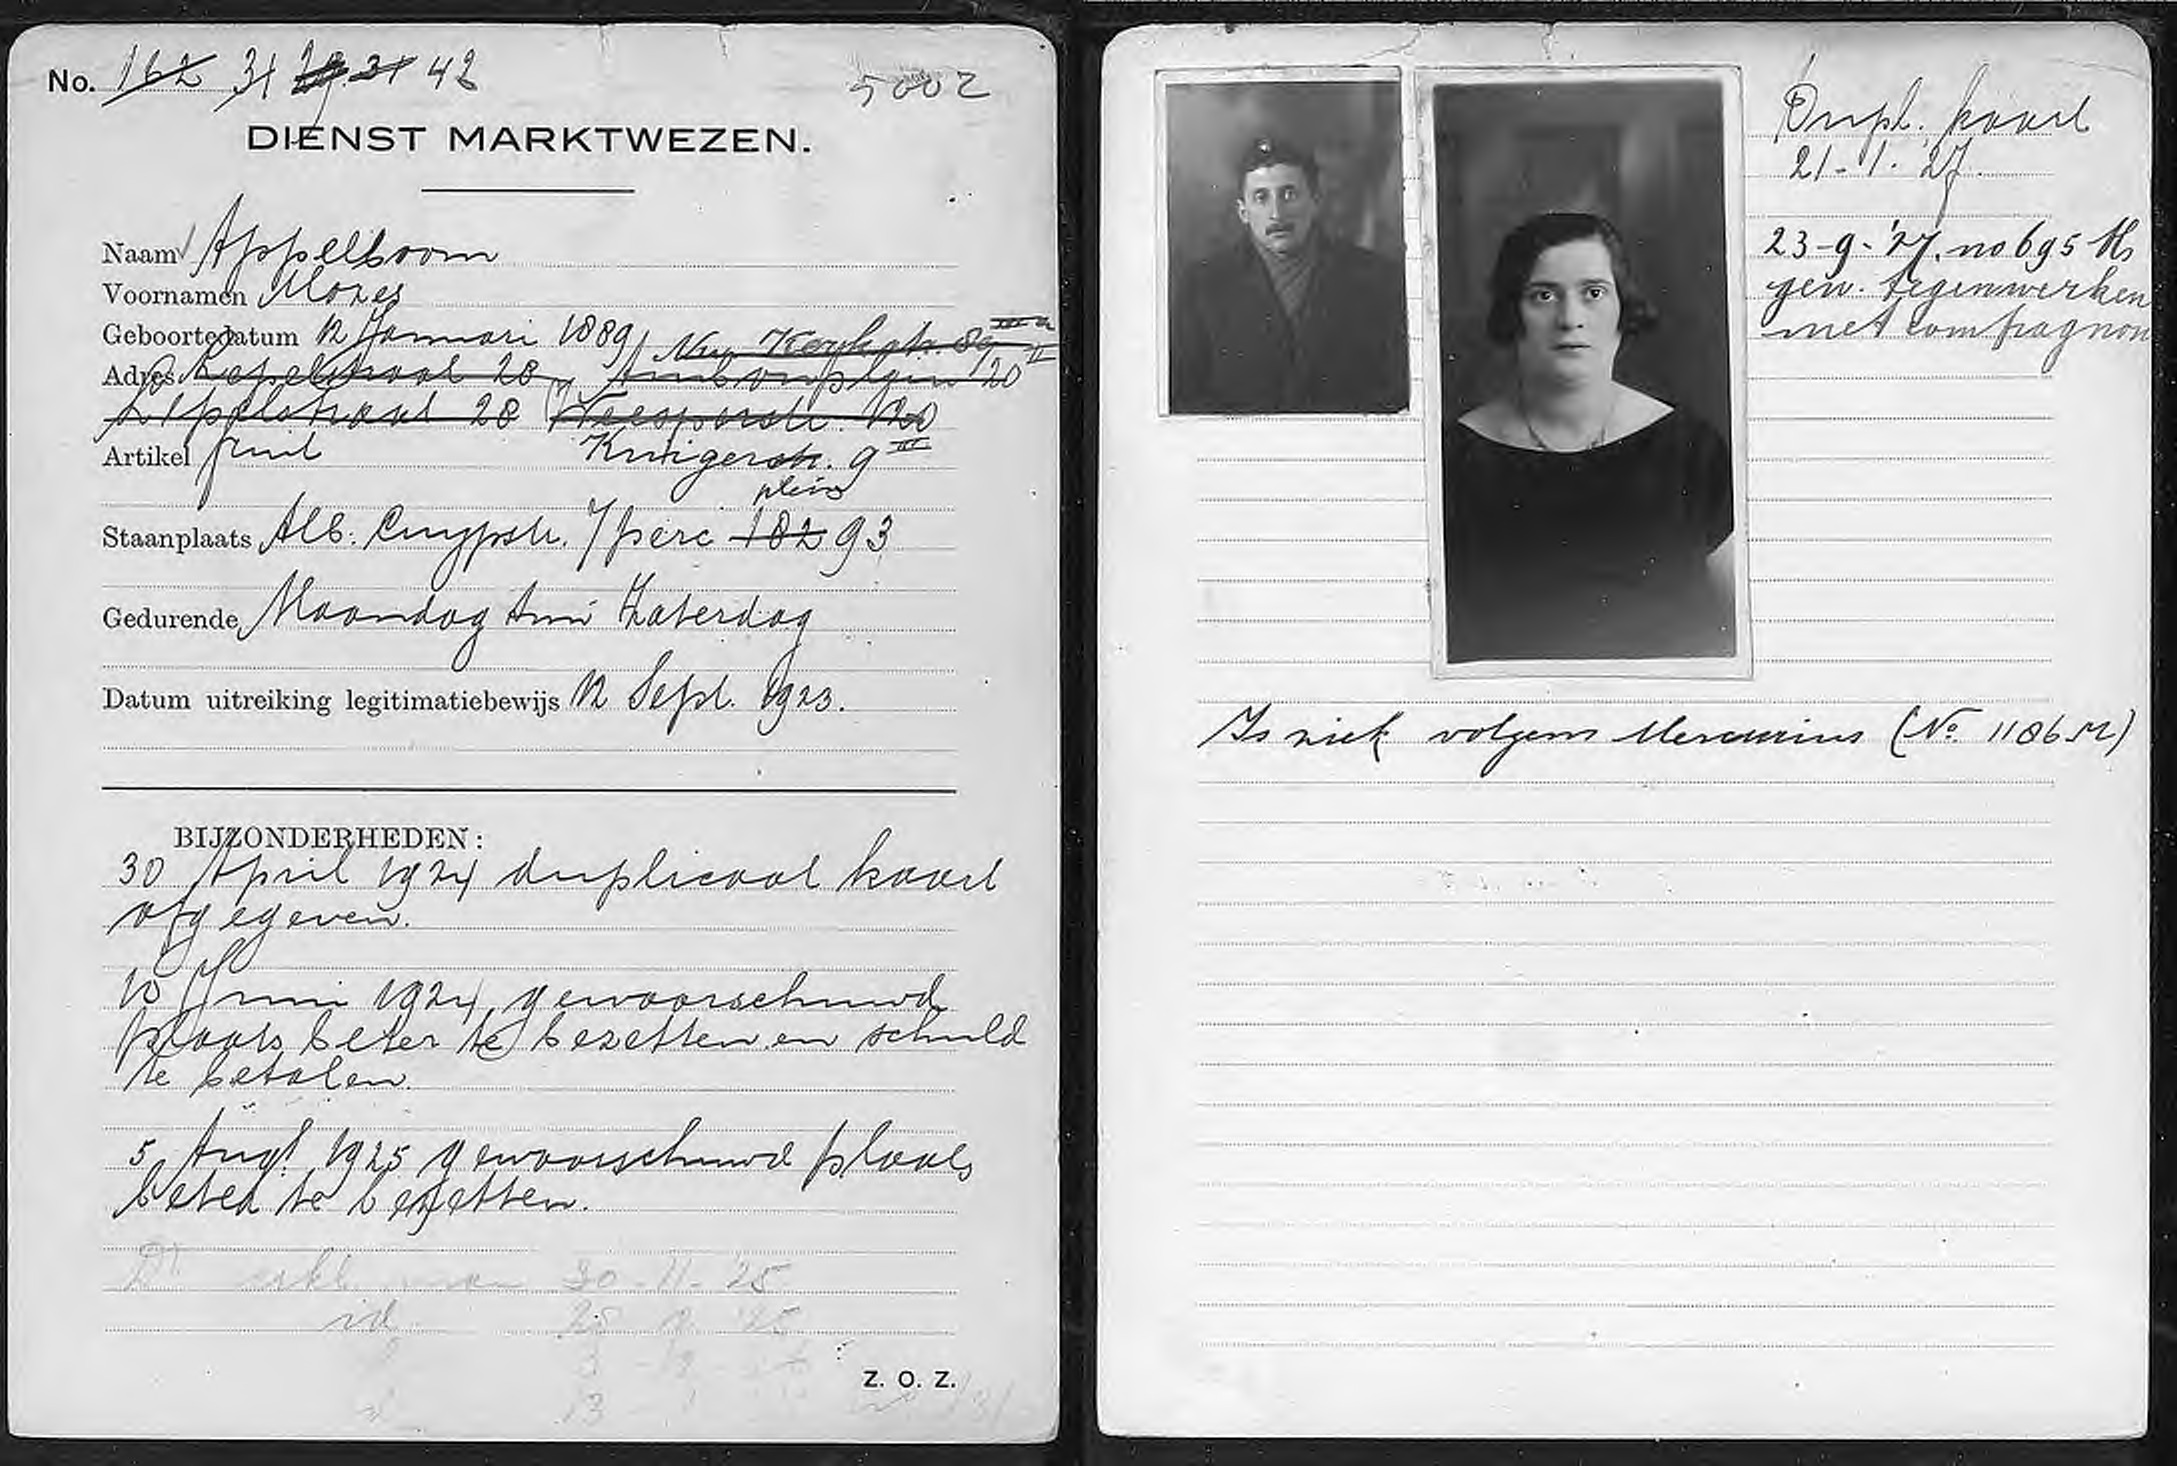 No. 162 31 31 42
5002
DIENST MARKTWEZEN.
Naam Appelboom
Voornamen Mozes
Geboortedatum 12 Januari 1889
Nw. Kerkstr. 89 III
Adres Lepelstraat 28 Ambonplein 20 II
Lepelstraat 28 Weesperstr.
Artikel fruit Krugerstr. 9 III
plein
Staanplaats Alb. Cuypstr. 7 perc 182 93
Gedurende Maandag t/m Zaterdag
Datum uitreiking legitimatiebewijs 12 Sept. 1923.
BIJZONDERHEDEN:
30 April 1924 duplicaat kaart
afgegeven.
10 Juni 1924 gewaarschuwd
plaats beter te bezetten en schuld
te betalen.
5 Augt 1925 gewaarschuwd plaats
beter te bezetten.
30-11-'25
id
13
Z. O. Z.
Dupl. kaart
21-1-'27.
23-9-'27. no 695 Ms
gew. tegenwerken
met compagnon
Is ziek volgens Mercurius (No. 1186 M)